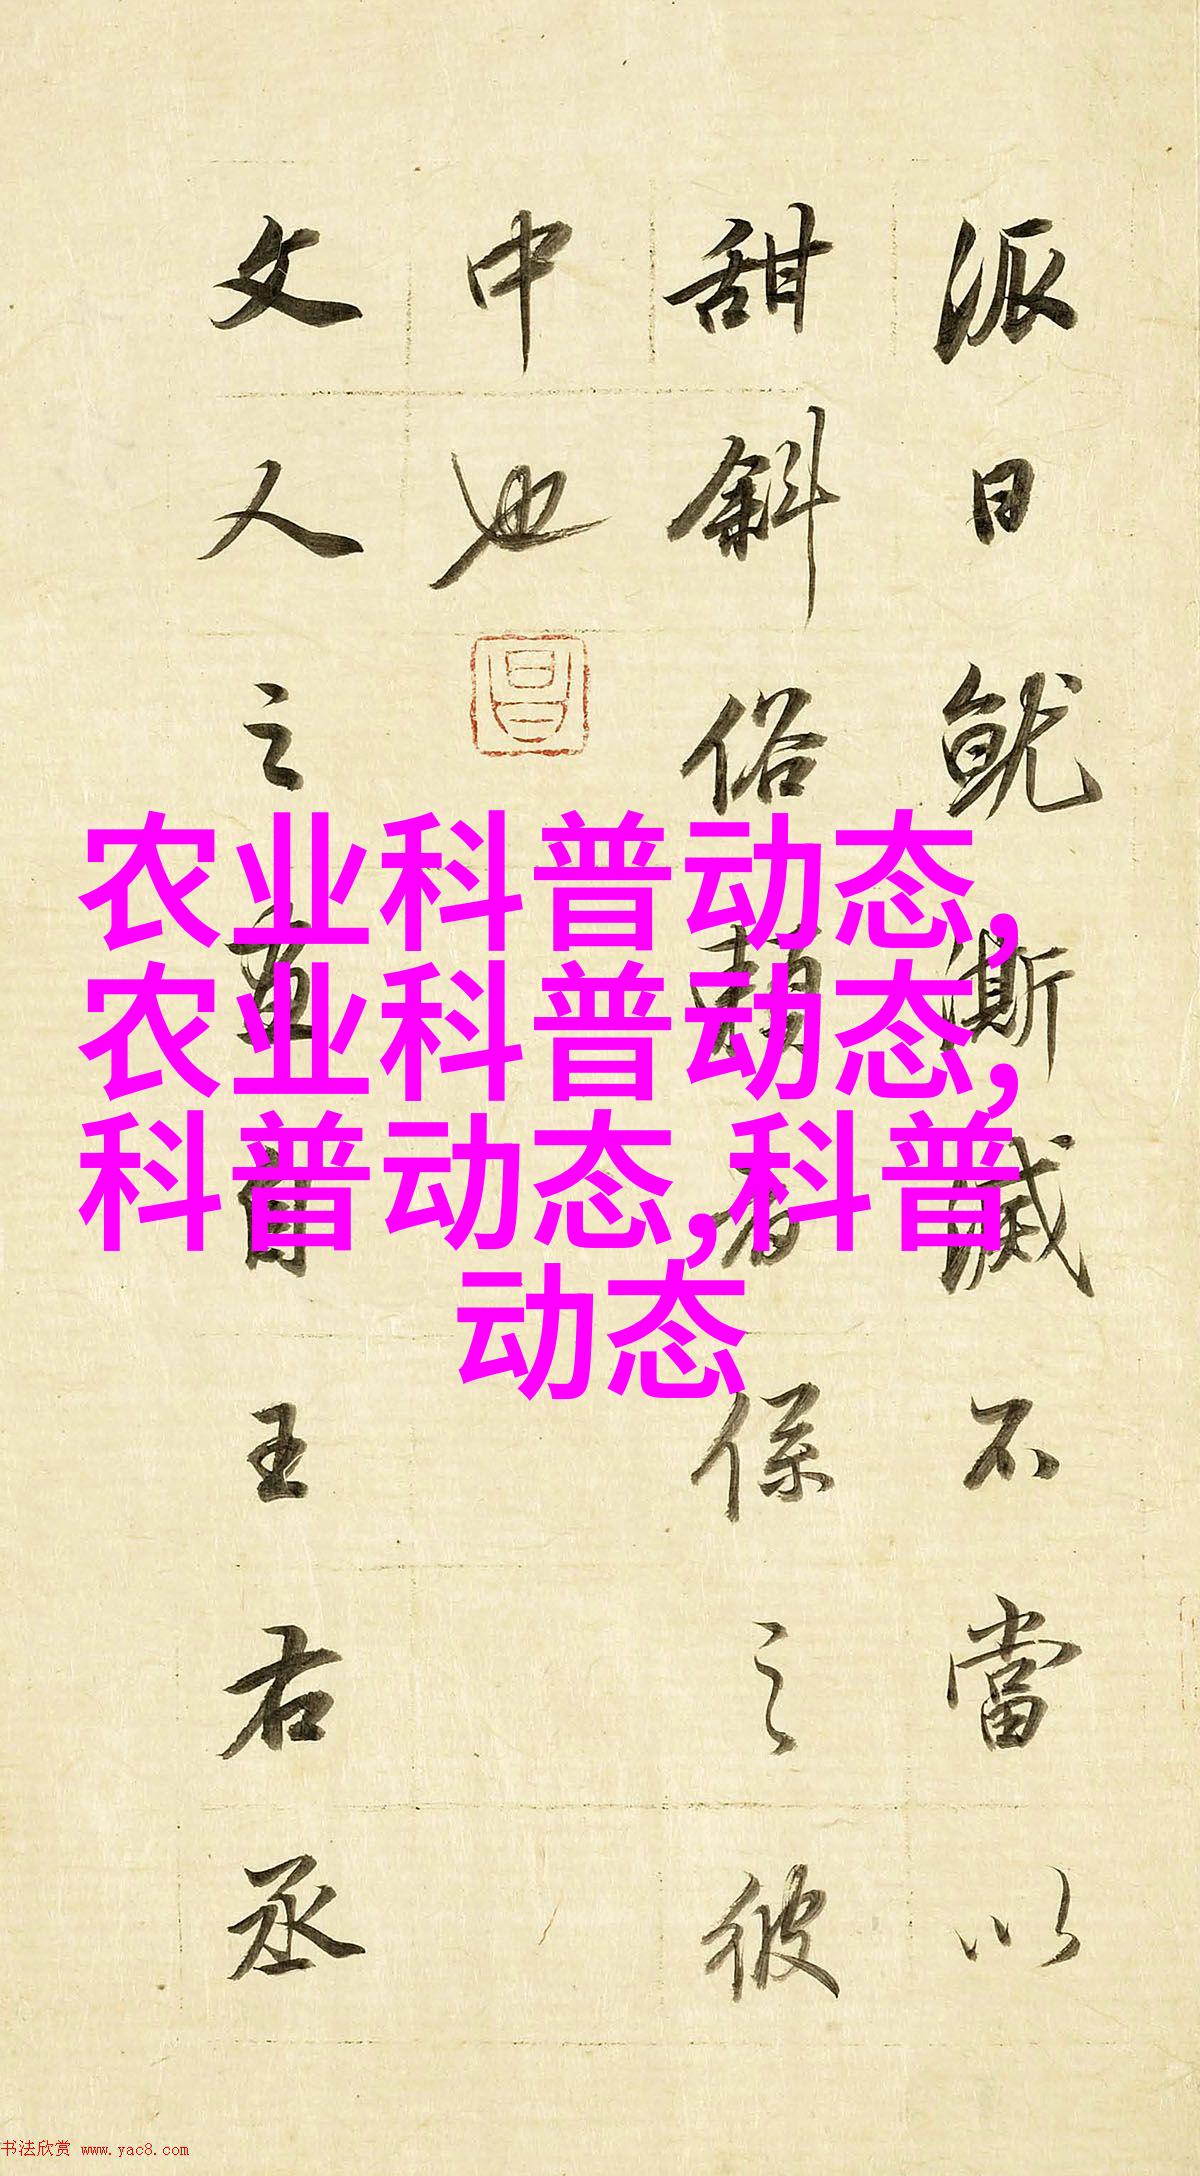 派日就澌滅不當以
甜斜俗賴者係之彼
中也
昌
文人之畫自王右丞
农业科普动态,
农业科普动态,
科普动态,科普
动态
书法欣赏 www.yac8.com